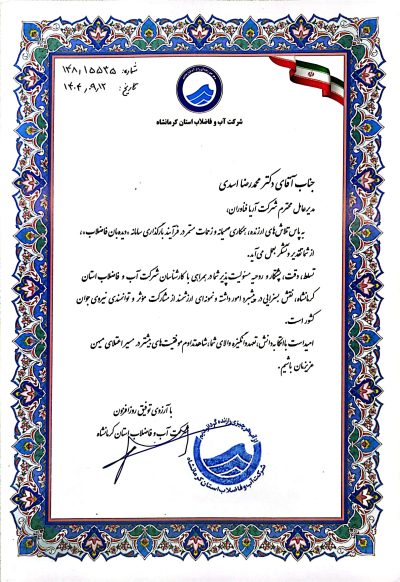 شماره: ۱۴۸٫۱۵۵۳۵
تاریخ: ۱۴۰۴٫۹٫۱۲
شرکت آب و فاضلاب استان کرمانشاه
جناب آقای دکتر محمدرضا اسدی
مدیرعامل محترم شرکت آریا فناوران،
به پاس تلاش‌های ارزنده، همکاری صمیمانه و زحمات مستمر در فرآیند بارگذاری سامانه «دیده‌بان فاضلاب»،
از شما تقدیر و تشکر بعمل می‌آید.
تسلط، دقت، پشتکار و روحیه مسئولیت پذیر شما در همراهی با کارشناسان شرکت آب و فاضلاب استان
کرمانشاه، نقش بسزایی در پیشبرد امور داشته و نمونه‌ای ارزشمند از مشارکت موثر و توانمندی نیروی جوان
کشور است.
امید است با اتکا به دانش، تعهد و انگیزه والای شما، شاهد تداوم موفقیت‌های بیشتر در مسیر اعتلای میهن
عزیزمان باشیم.
با آرزوی توفیق روزافزون
شرکت آب و فاضلاب استان کرمانشاه
شرکت آب و فاضلاب استان کرمانشاه